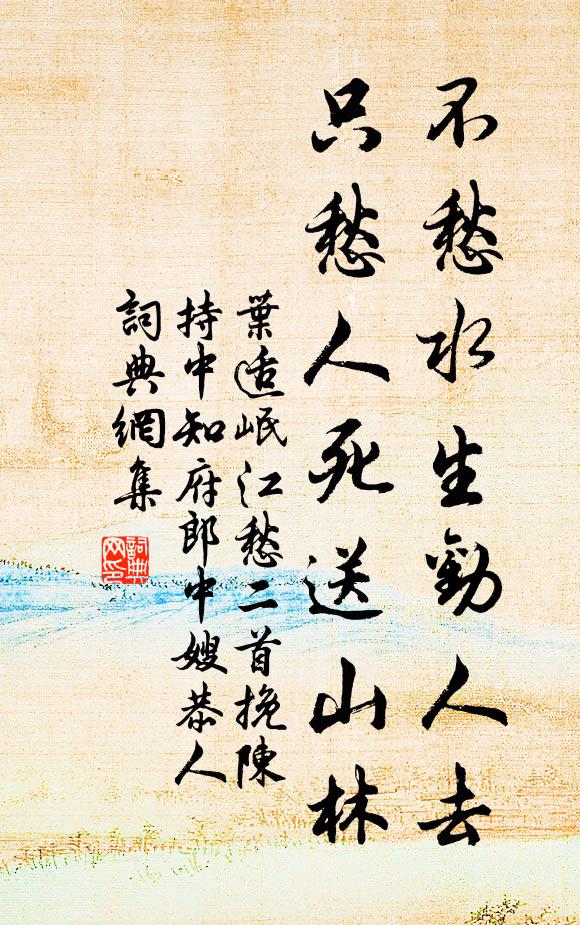 不愁水生勸人去
只愁人死送山林
葉适岷江愁二首挽陳
持中知府郎中嫂恭人
詞典網集
詞典网印